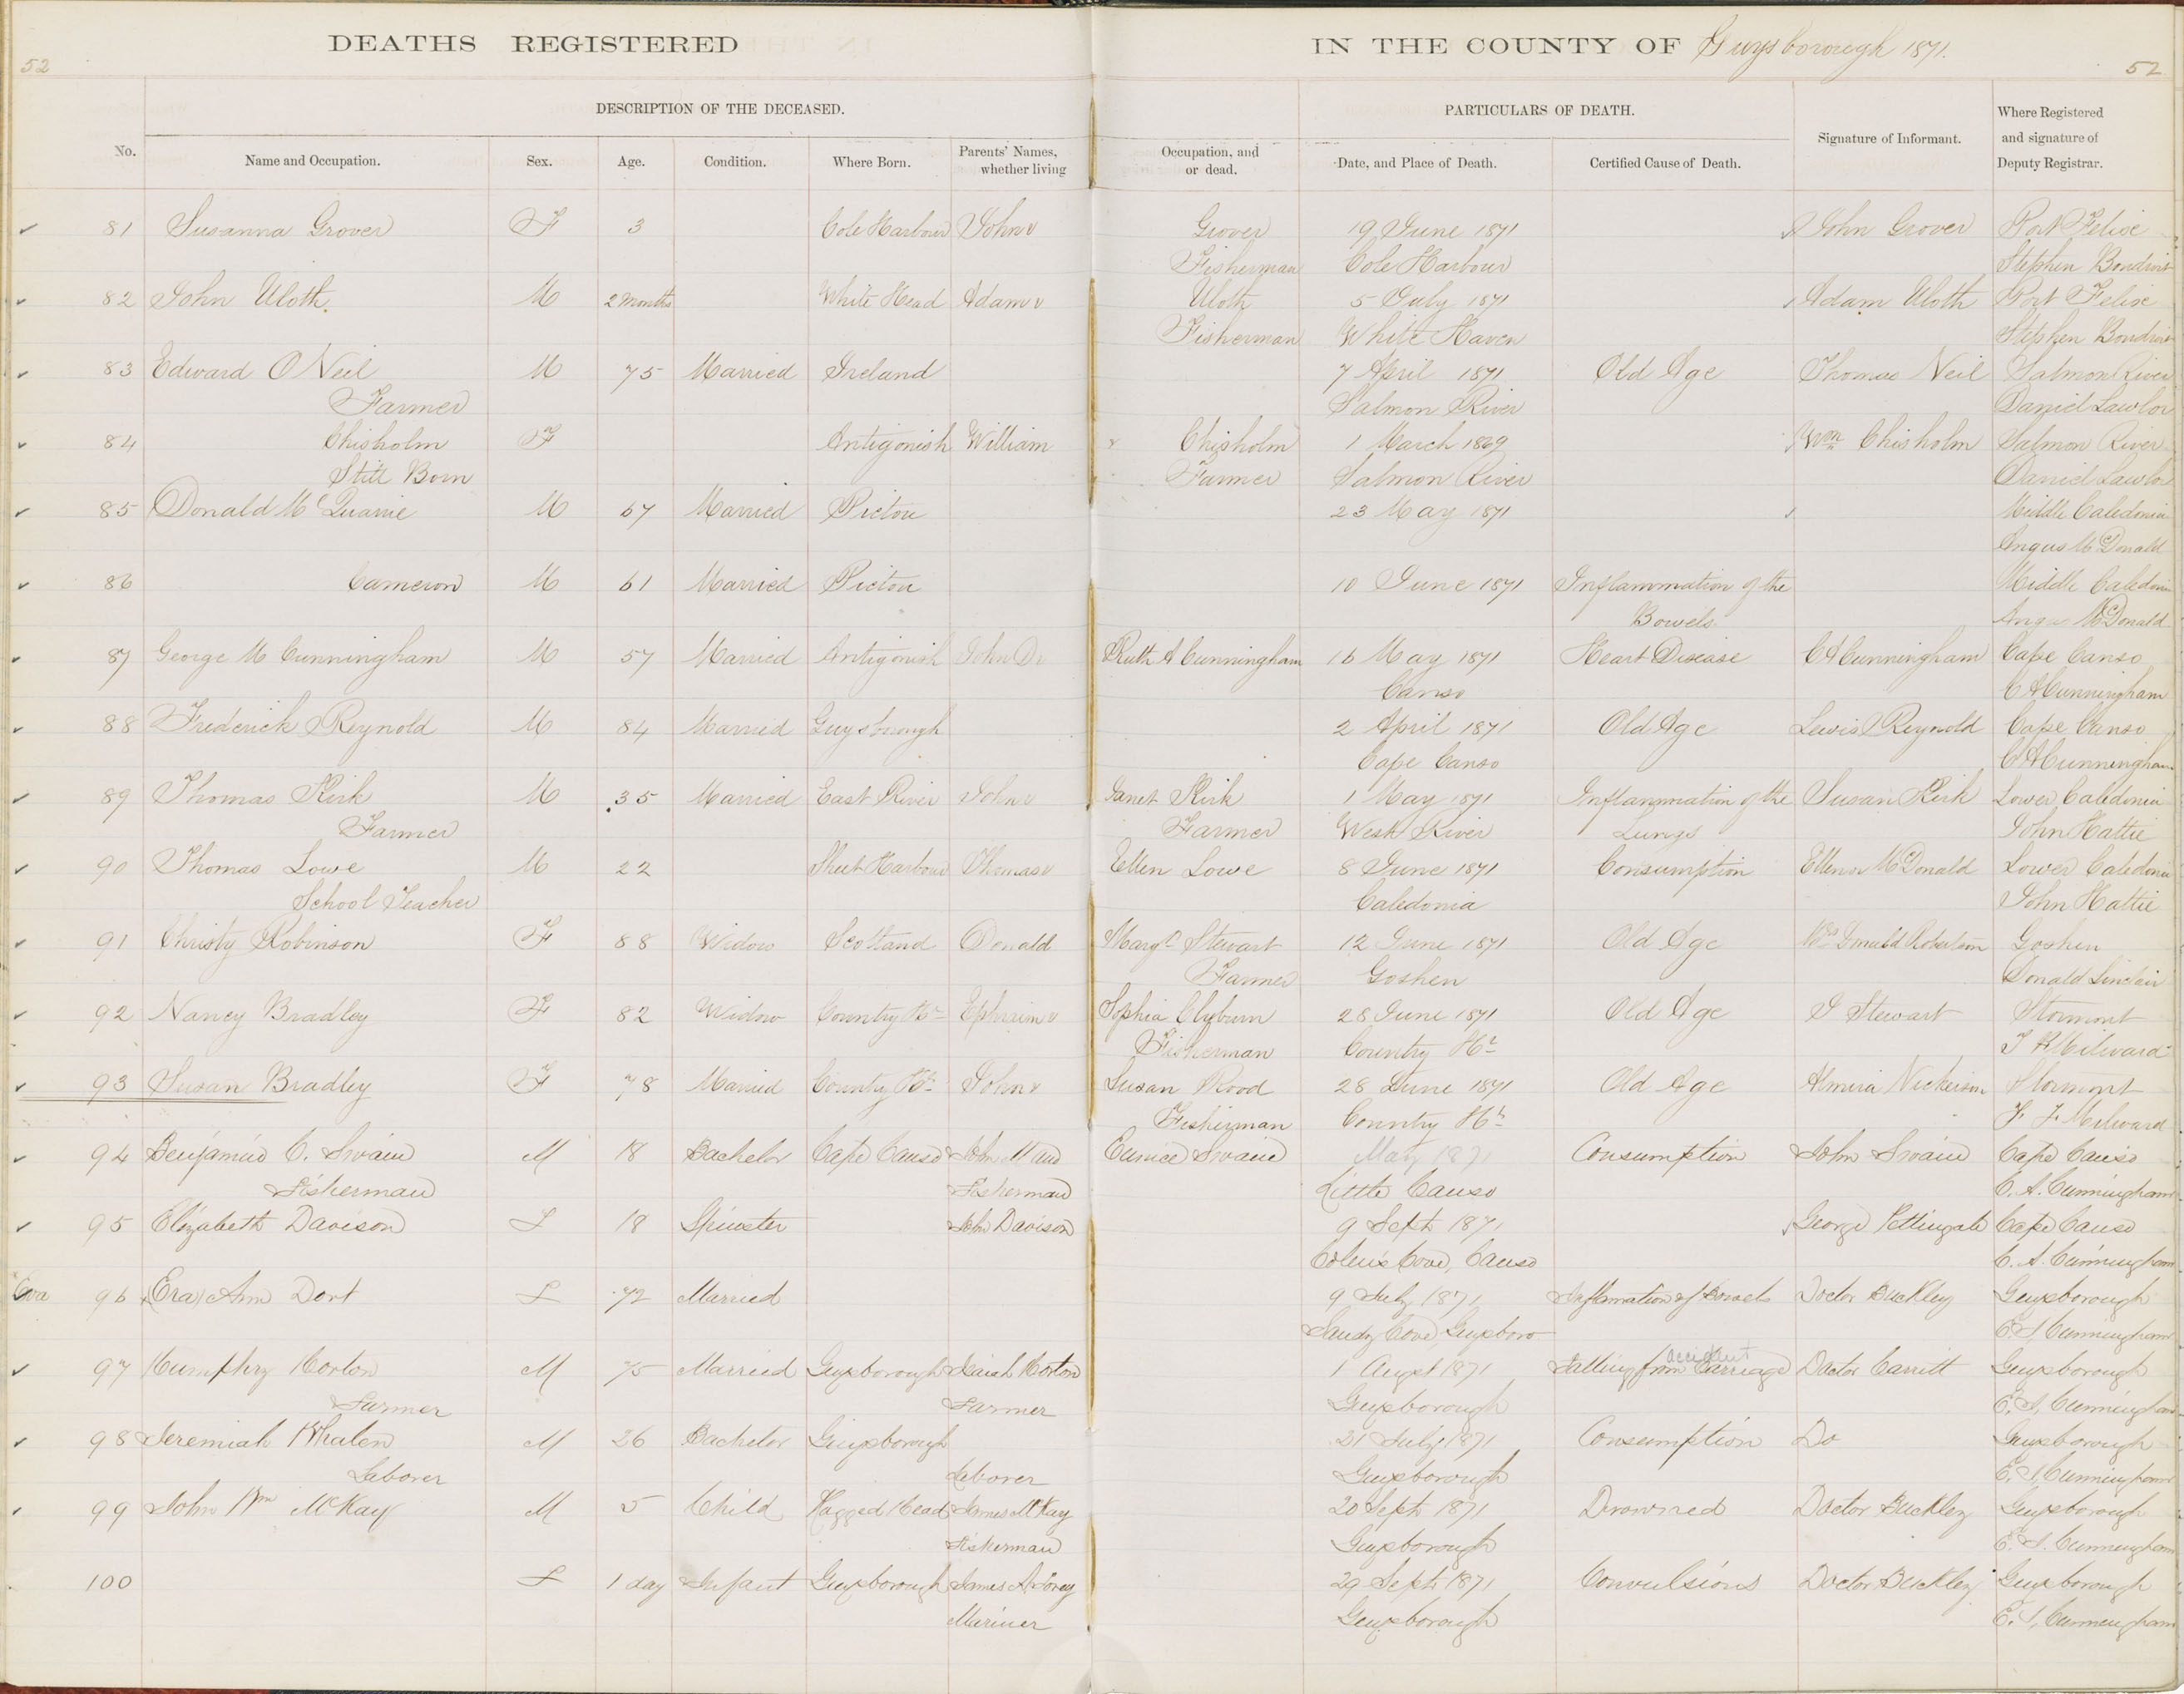 DEATHS REGISTERED IN THE COUNTY OF Guysborough 1871.
52 52
DESCRIPTION OF THE DECEASED. PARTICULARS OF DEATH.
No. Name and Occupation. Sex. Age. Condition. Where Born. Parents' Names, whether living Occupation, and or dead. Date, and Place of Death. Certified Cause of Death. Signature of Informant. Where Registered and signature of Deputy Registrar.
81 Susanna Grover F 3 Cole Harbour John Grover 19 June 1871 John Grover Port Felixe
Fisherman Cole Harbour Stephen Boudroit
82 John Uloth. M 2 Months White Head Adam Uloth 5 July 1871 Adam Uloth Port Felixe
Fisherman White Haven Stephen Boudroit
83 Edward O Neil M 75 Married Ireland 7 April 1871 Old Age Thomas Neil Salmon River
Farmer Salmon River Daniel Lawlor
84 Chisholm F Antigonish William Chisholm 1 March 1869 Wm Chisholm Salmon River
Still Born Farmer Salmon River Daniel Lawlor
85 Donald McQuarrie M 67 Married Pictou 23 May 1871 Middle Caledonia
Angus McDonald
86 Cameron M 61 Married Pictou 10 June 1871 Inflammation of the Middle Caledonia
Bowels. Angus McDonald
87 George M Cunningham M 57 Married Antigonish John D Ruth A Cunningham 16 May 1871 Heart Disease C A Cunningham Cape Canso
Canso C A Cunningham
88 Frederick Reynold M 84 Married Guysborough 2 April 1871 Old Age Lewis Reynold Cape Canso
Cape Canso C A Cunningham
89 Thomas Kirk M 35 Married East River John Janet Kirk 1 May 1871 Inflammation of the Susan Kirk Lower Caledonia
Farmer Farmer West River Lungs John Hattie
90 Thomas Lowe M 22 Sheet Harbour Thomas Ellen Lowe 8 June 1871 Consumption Ellen McDonald Lower Caledonia
School Teacher Caledonia John Hattie
91 Christy Robinson F 88 Widow Scotland Donald Margt Stewart 12 June 1871 Old Age Mrs Donald Robertson Goshen
Farmer Goshen Donald Sinclair
92 Nancy Bradley F 82 Widow Country Hr Ephraim Sophia Clyburn 28 June 1871 Old Age J Stewart Stormont
Fisherman Country Hr Milward
93 Susan Bradley F 78 Married Country Hr John Susan Rood 28 June 1871 Old Age Almira Nickerson Stormont
Fisherman Country Hr Milward
94 Benjamin C. Swain M 18 Bachelor Cape Canso John M and Eunice Swain May 1871 Consumption John Swain Cape Canso
Fisherman Fisherman Little Canso C. A. Cunningham
95 Elizabeth Davison F 18 Spinster John Davison 9 Sept 1871 George Pettingale Cape Canso
Cove, Canso C. A. Cunningham
Eva 96 (Era) Ann Dort F 72 Married 9 July 1871 Inflamation of Bowels Doctor Buckley Guysborough
Sandy Cove, Guysboro E. S. Cunningham
accident
97 Humphry Horton M 75 Married Guysborough Isaiah Horton 1 Augst 1871 Falling from Carriage Doctor Carritt Guysborough
Farmer Farmer Guysborough E. S. Cunningham
98 Jeremiah Whalen M 26 Bachelor Guysborough 21 July 1871 Consumption Do Guysborough
Laborer Laborer Guysborough E. S. Cunningham
99 John Wm McKay M 5 Child Ragged Head James McKay 20 Sept 1871 Drowned Doctor Buckley Guysborough
Fisherman Guysborough E. S. Cunningham
100 F 1 day Infant Guysborough James A Torey 29 Sept 1871 Convulsions Doctor Buckley Guysborough
Mariner Guysborough E. S. Cunningham